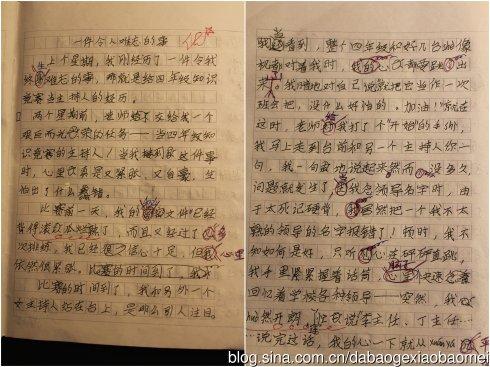 一件令人难忘的事
上个星期,我刚经历了一件令我
终生难忘的事,那就是给四年级知识
竞赛当主持人的经历。
两个星期前,老师给了交给我一个
艰巨而光荣的任务——当四年级知
识竞赛的主持人!当我接到这件事
时,心里既是又紧张、又
怕出了什么差错。
比赛前一天,我的文件已经
背得滚瓜烂熟了,而且又经过了
次排练,我已经信心十足,但
依然很紧张。比赛的时间到了,我
比赛的时间到了,我和另外一个
女主持人站在台上,是那么引人注目。
我看到,整个四年级和好几台摄像
机都对着我时,我的心都要跳出
来。我暗暗对自己说就把它当作一次
班会吧,没什么好怕的。加油!就在
这时,老师给我打了个“开始”的手势,
我马上走到台前和另一个主持人你一
句,我一句地说起来。然而,没多久,
问题就发生了,我念领导名字时,由
于太死记硬背,竟然把一个我不太
熟的领导的名字报错了!顿时,我不
知如何是好,只听心怦怦直跳,
我手里紧紧握着话筒,心里快速
回忆着学校各种领导——突然,我
然开朗,说“李主任、丁主任……”
说完过话,我的心一下就从
blog.sina.com.cn/dabaogexiaobaomei